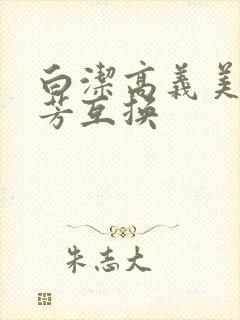 白潔高義美
芳互换
朱志大